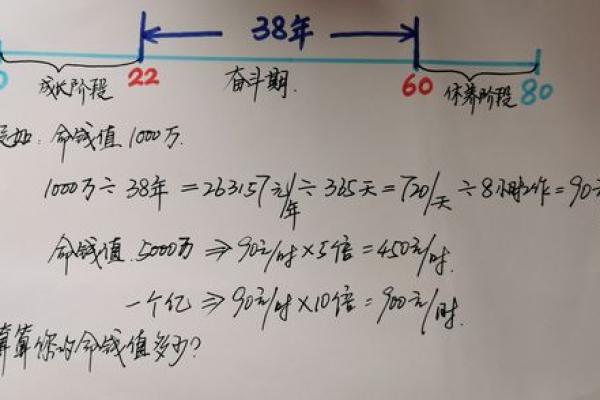 38年
0 22 60 80
成长阶段 奋斗期. 休养阶段
如: 命钱值 1000万.
1000万÷38年=263157元/年÷365天=720/天÷8小时工作=90元
命钱值.5000万⇒90元/时×5倍=450元/时.
一个亿⇒90元/时×10倍=900元/时.
算算你的命钱值多少?